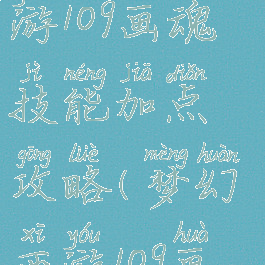 游109画魂
jì néng jiā diǎn
技能加点
gōng lüè mèng huàn
攻略(梦幻
xī yóu huà
西游109画